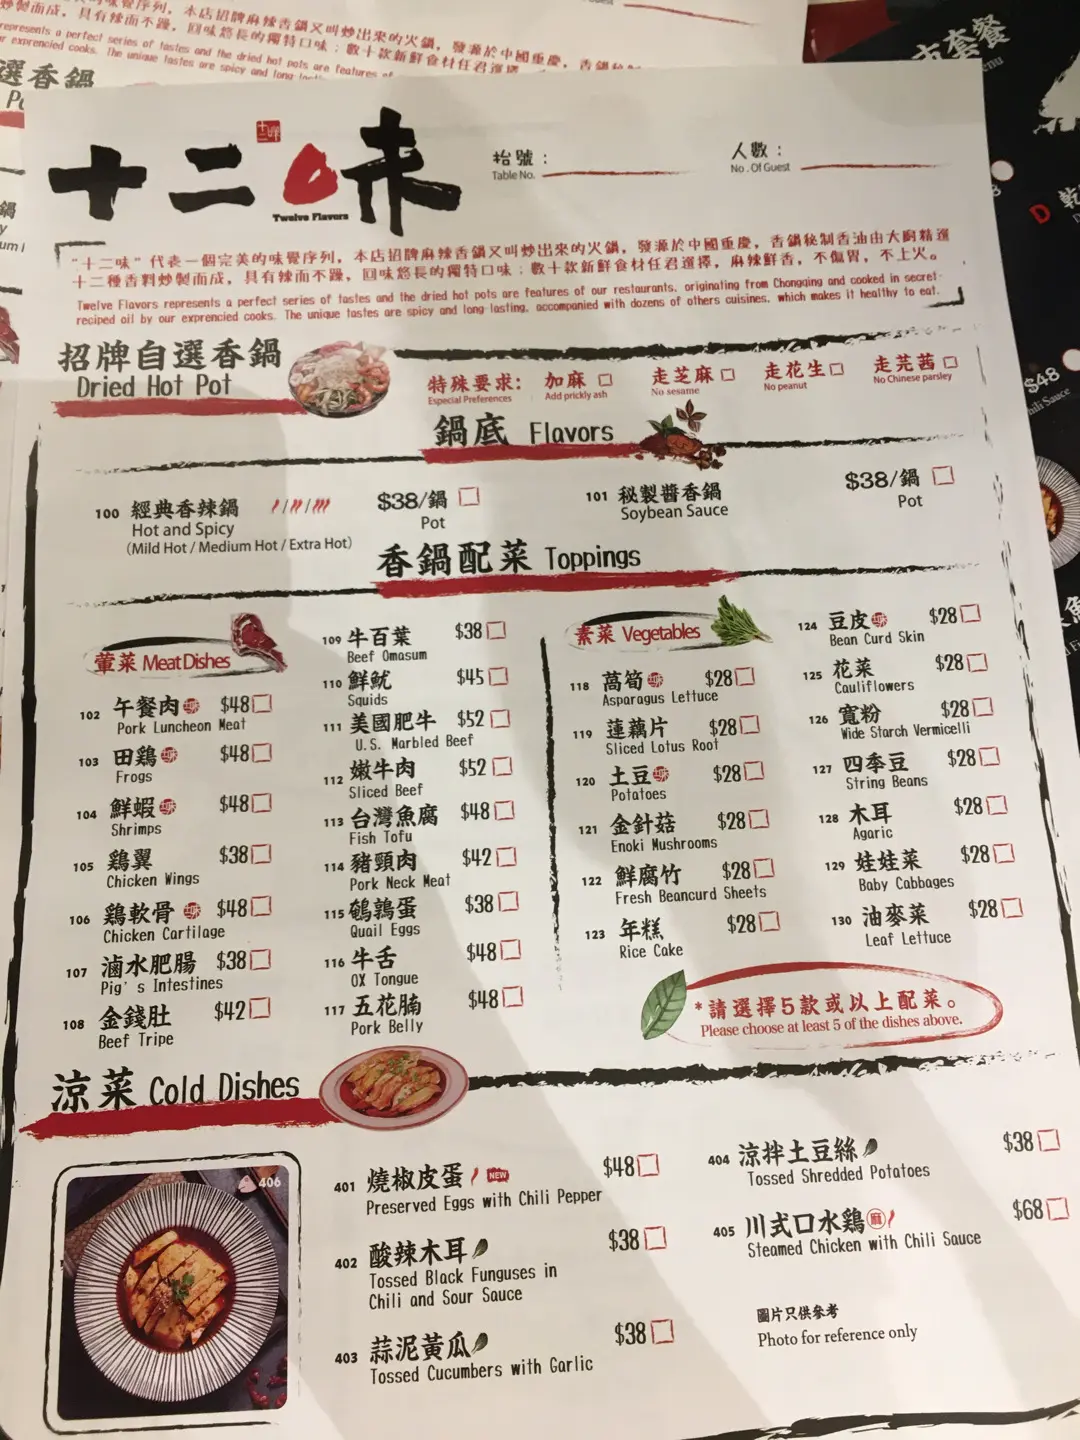 十二味
Twelve Flavors
枱號：
Table No.
人數：
No. Of Guest
“十二味”代表一個完美的味覺序列，本店招牌麻辣香鍋又叫炒出來的火鍋，發源於中國重慶，香鍋秘制香油由大廚精選
十二種香料炒製而成，具有辣而不躁，回味悠長的獨特口味；數十款新鮮食材任君選擇，麻辣鮮香，不傷胃，不上火。
Twelve Flavors represents a perfect series of tastes and the dried hot pots are features of our restaurants, originating from Chongqing and cooked in secret-
reciped oil by our exprencied cooks. The unique tastes are spicy and long-lasting, accompanied with dozens of others cuisines, which makes it healthy to eat.
招牌自選香鍋
Dried Hot Pot
特殊要求：
Especial Preferences
加麻
Add prickly ash
走芝麻
No sesame
走花生
No peanut
走芫茜
No Chinese parsley
鍋底 Flavors
100 經典香辣鍋 $38/鍋
Hot and Spicy Pot
(Mild Hot / Medium Hot / Extra Hot)
101 秘製醬香鍋 $38/鍋
Soybean Sauce Pot
香鍋配菜 Toppings
葷菜 Meat Dishes
102 午餐肉 $48
Pork Luncheon Meat
103 田鷄 $48
Frogs
104 鮮蝦 $48
Shrimps
105 鷄翼 $38
Chicken Wings
106 鷄軟骨 $48
Chicken Cartilage
107 滷水肥腸 $38
Pig's Intestines
108 金錢肚 $42
Beef Tripe
109 牛百葉 $38
Beef Omasum
110 鮮魷 $45
Squids
111 美國肥牛 $52
U.S. Marbled Beef
112 嫩牛肉 $52
Sliced Beef
113 台灣魚腐 $48
Fish Tofu
114 豬頸肉 $42
Pork Neck Meat
115 鵪鶉蛋 $38
Quail Eggs
116 牛舌 $48
OX Tongue
117 五花腩 $48
Pork Belly
素菜 Vegetables
118 萵筍 $28
Asparagus Lettuce
119 蓮藕片 $28
Sliced Lotus Root
120 土豆 $28
Potatoes
121 金針菇 $28
Enoki Mushrooms
122 鮮腐竹 $28
Fresh Beancurd Sheets
123 年糕 $28
Rice Cake
124 豆皮 $28
Bean Curd Skin
125 花菜 $28
Cauliflowers
126 寬粉 $28
Wide Starch Vermicelli
127 四季豆 $28
String Beans
128 木耳 $28
Agaric
129 娃娃菜 $28
Baby Cabbages
130 油麥菜 $28
Leaf Lettuce
*請選擇5款或以上配菜。
Please choose at least 5 of the dishes above.
涼菜 Cold Dishes
406
401 燒椒皮蛋 NEW $48
Preserved Eggs with Chili Pepper
402 酸辣木耳 $38
Tossed Black Funguses in
Chili and Sour Sauce
403 蒜泥黃瓜 $38
Tossed Cucumbers with Garlic
404 涼拌土豆絲 $38
Tossed Shredded Potatoes
405 川式口水鷄 麻 $68
Steamed Chicken with Chili Sauce
圖片只供參考
Photo for reference only